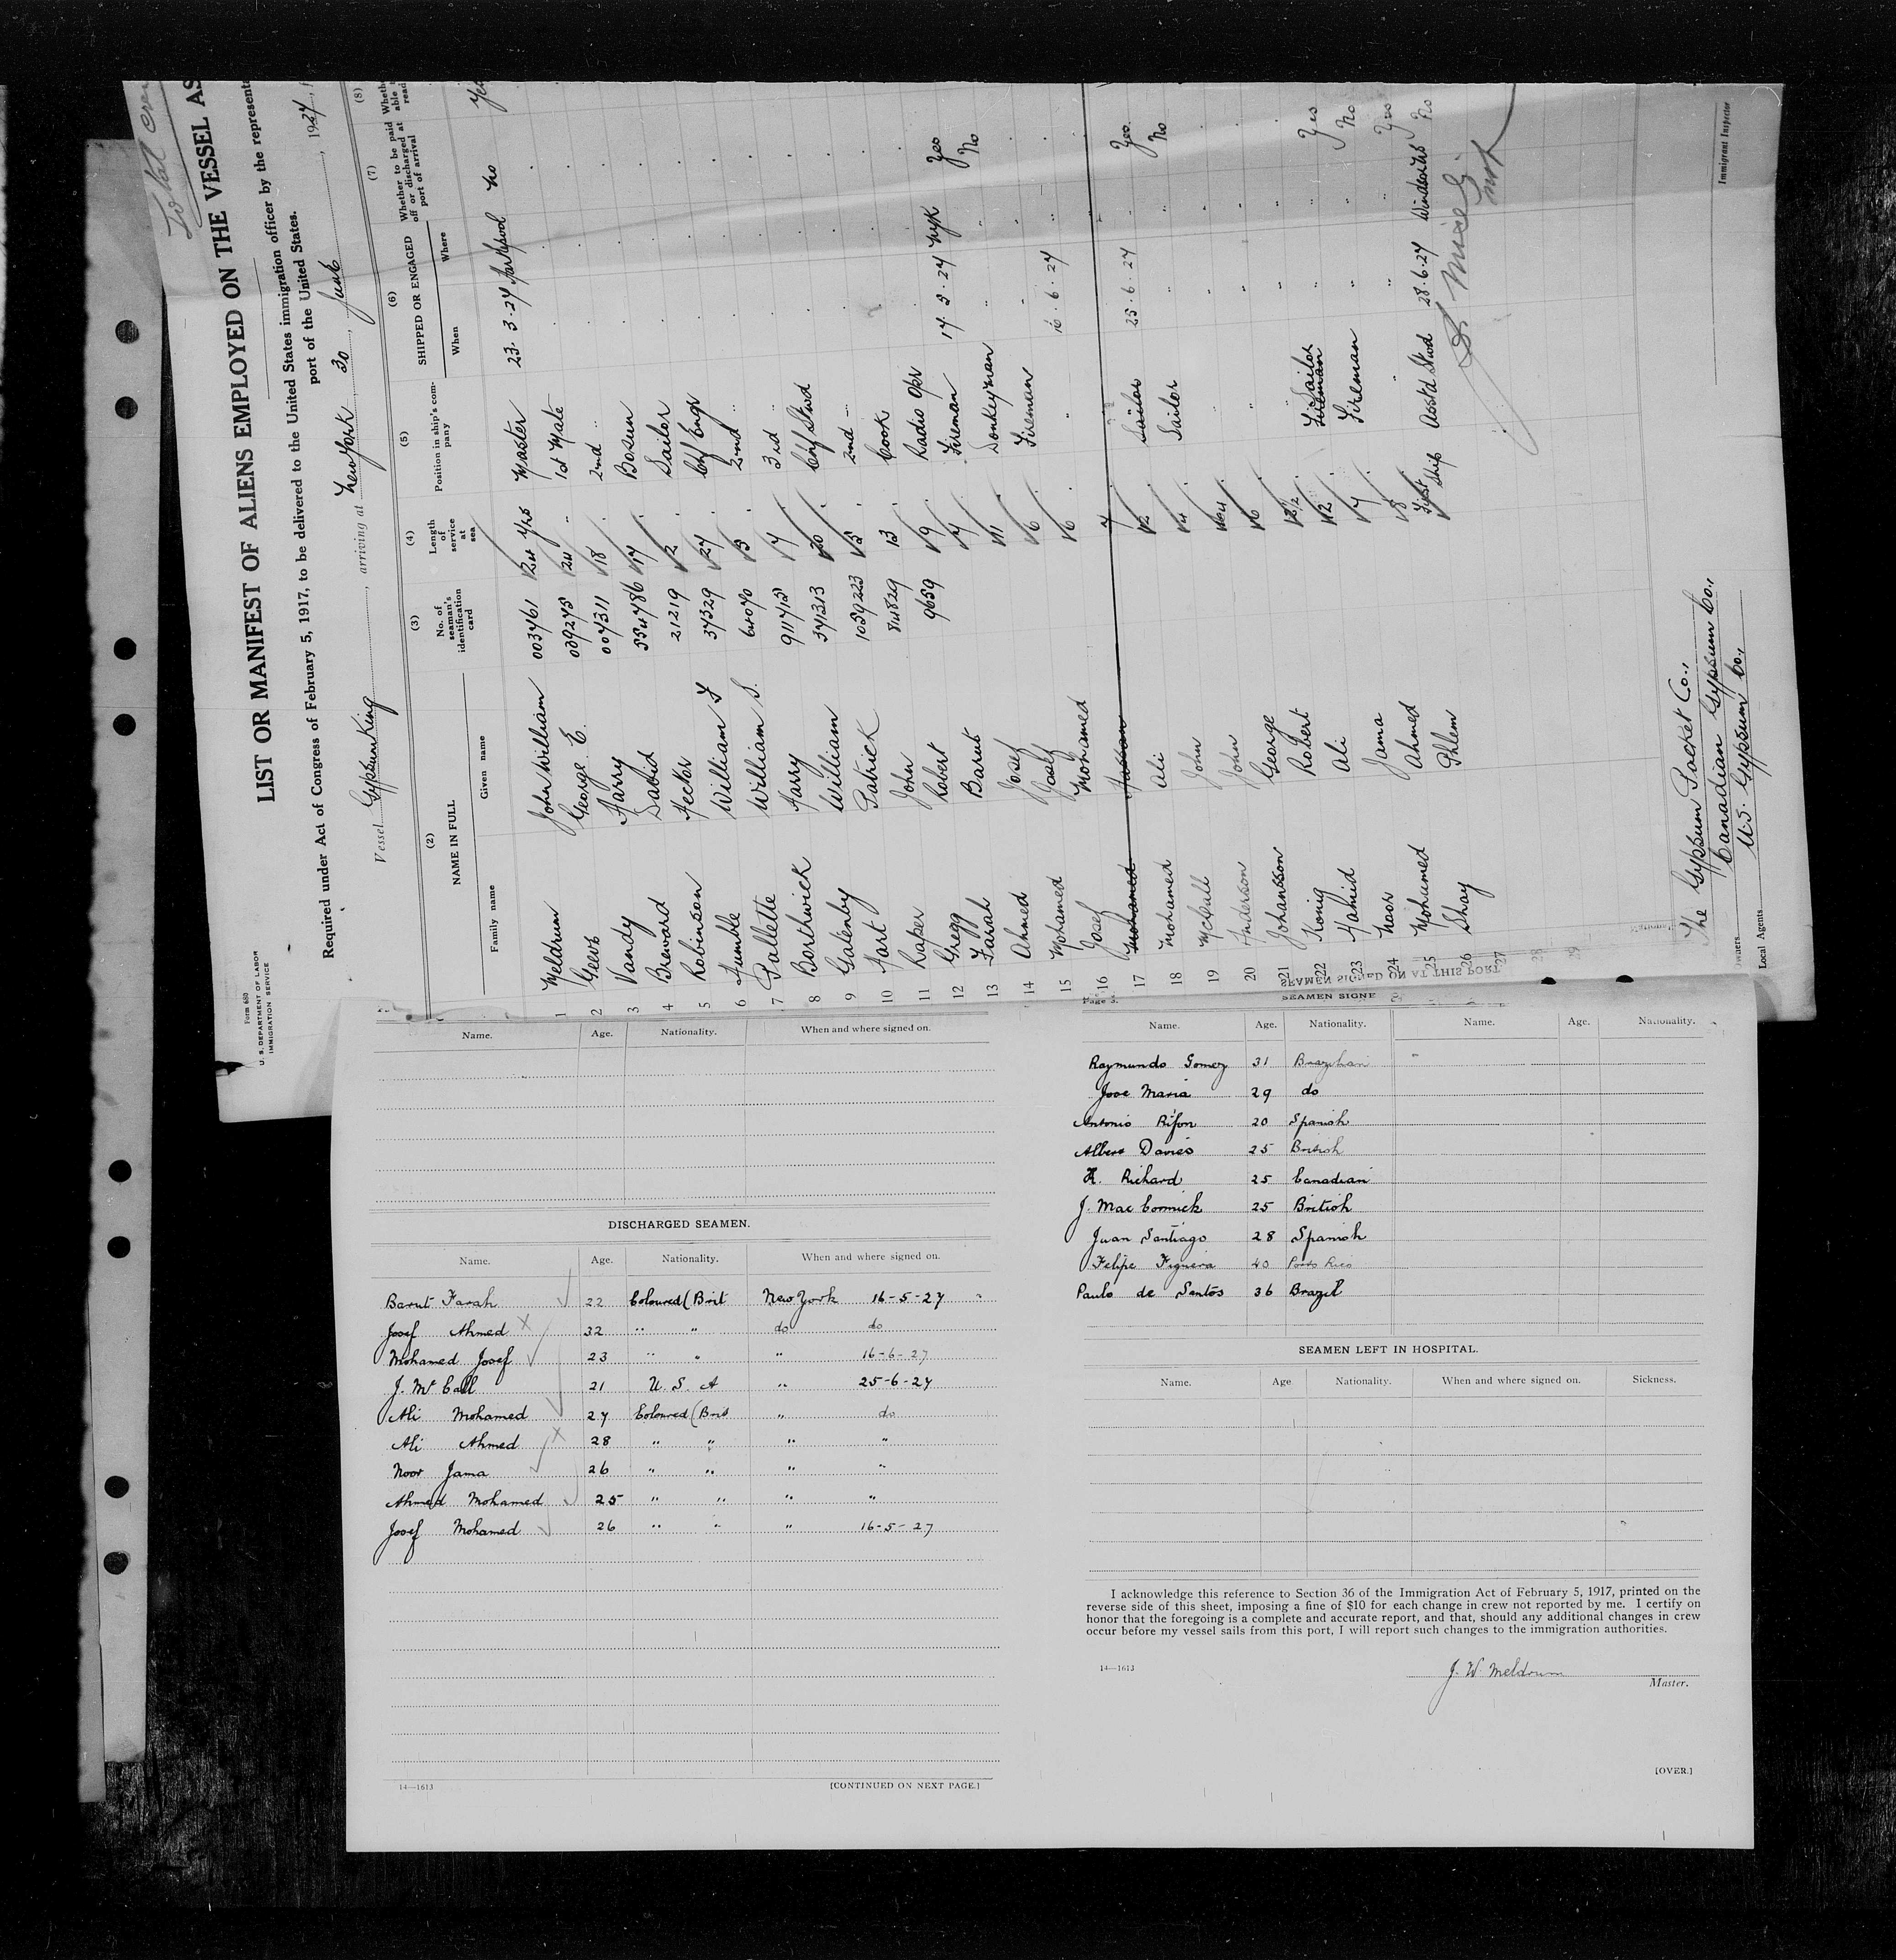 Total Crew
LIST OR MANIFEST OF ALIENS EMPLOYED ON THE VESSEL AS
Required under Act of Congress of February 5, 1917, to be delivered to the United States immigration officer by the represent
port of the United States.
Form 680
U. S. DEPARTMENT OF LABOR
IMMIGRATION SERVICE
Vessel Gypsum King, arriving at New York 30, June, 1927
(2) (3) (4) (5) (6) (7) (8)
NAME IN FULL No. of seaman's identification card Length of service at sea Position in ship's company SHIPPED OR ENGAGED Whether to be paid off or discharged at port of arrival
Family name Given name When Where
1 Meldrum John William 003461 24 yrs Master 23.3.27 Hartlepool no
2 George E. 24 1st Mate
3 Vandy Harry 004311 18 2nd
4 Breward David 17 Bosun
5 Robinson Hector 21219 2 Sailor
6 Humble William 37329 27 Chf Engr
7 Pallette William S. 3 2nd
8 Borthwick Harry 7 3rd
9 Galenby William 371313 20 Chf Stwd
10 Hart Patrick 1039223 2nd
11 Raper John 13 Cook
12 Gregg Robert 9659 9 Radio Opr
13 Farah Barut 7 Fireman Nyk Yes
14 Ahmed Josef 11 Donkeyman No
15 Mohamed Josef 6 Fireman
16 Josef Mohamed 6 16.6.27
17 Mohamed Hassan 7
18 Mohamed Ali Sailor 25.6.27 Yes
19 McCall John Sailor No
20 Anderson John
21 Johansson George 6
22 Konig Robert Fireman Sailor Yes
23 Hahid Ali Fireman No
24 Noor Jama 7 Yes
25 Mohamed Ahmed Yes
26 Shay Phlem First Ship Asst'd Stwd 28.6.27 Windsor NS No
27
28
29
The Gypsum Packet Co.,
Canadian Gypsum Co.,
Owners
U.S. Gypsum Co.,
Local Agents
Immigrant Inspector
SEAMEN SIGNED ON AT THIS PORT
Name. Age. Nationality. When and where signed on.
DISCHARGED SEAMEN.
Name. Age. Nationality. When and where signed on.
Barut Farah 22 Coloured (Brit New York 16-5-27
Josef Ahmed 32 " " do do
Mohamed Josef 23 " " " 16-6-27
J. McCall 21 U. S. A " 25-6-27
Ali Mohamed 27 Coloured (Brit " do
Ali Ahmed 28 " " " "
Noor Jama 26 " " " "
Ahmed Mohamed 25 " " " "
Josef Mohamed 26 " " " 16-5-27
14—1613 [CONTINUED ON NEXT PAGE.]
Page 3.
SEAMEN SIGNE
Name. Age. Nationality. Name. Age. Nationality.
Raymundo Gomez 31 Brazilian
Jose Maria 29 do
Antonio Rifon 20 Spanish
Albert Davies 25 British
H. Richard 25 Canadian
J. Mac Cormick 25 British
Juan Santiago 28 Spanish
Felipe Figuera 40 Porto Rico
Paulo de Santos 36 Brazil
SEAMEN LEFT IN HOSPITAL.
Name. Age Nationality. When and where signed on. Sickness.
I acknowledge this reference to Section 36 of the Immigration Act of February 5, 1917, printed on the
reverse side of this sheet, imposing a fine of $10 for each change in crew not reported by me. I certify on
honor that the foregoing is a complete and accurate report, and that, should any additional changes in crew
occur before my vessel sails from this port, I will report such changes to the immigration authorities.
14—1613
J. W. Meldrum
Master.
[OVER.]